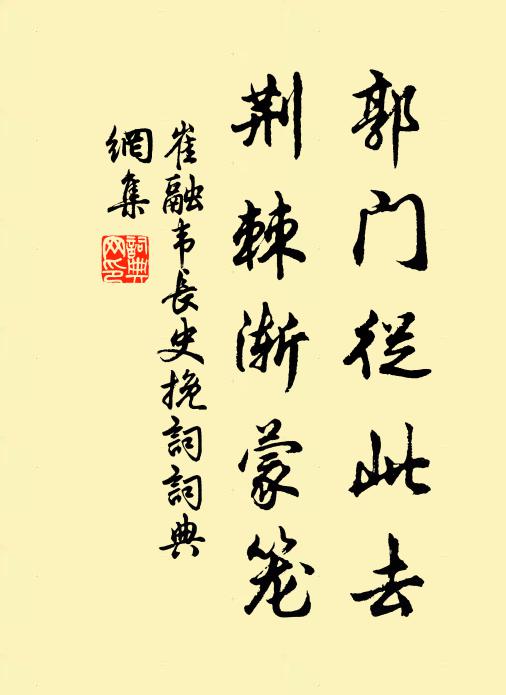 郭门從此去
荆棘渐蒙笼
崔融韦長史挽詞詞典
網集
詞典网印